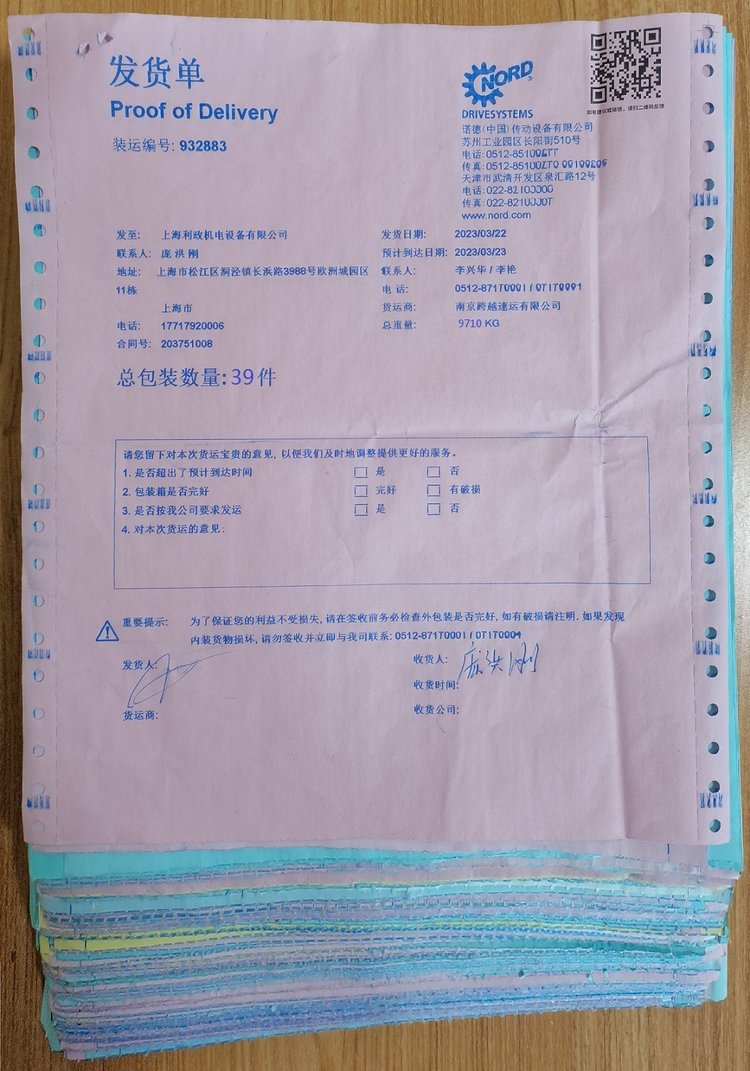 发货单
Proof of Delivery
装运编号: 932883
NORD
DRIVESYSTEMS
诺德(中国)传动设备有限公司
苏州工业园区长阳街510号
电话: 0512-85100
传真: 0512-85100
天津市武清开发区泉汇路12号
电话: 022-82
传真: 022-82
www.nord.com
发至: 上海利政机电设备有限公司
联系人: 庞洪刚
地址: 上海市松江区洞泾镇长浜路3988号欧洲城园区
11栋
上海市
电话: 17717920006
合同号: 203751008
发货日期: 2023/03/22
预计到达日期: 2023/03/23
联系人: 李兴华 / 李艳
电话: 0512-871
货运商: 南京跨越速运有限公司
总重量: 9710 KG
总包装数量: 39 件
请您留下对本次货运宝贵的意见, 以便我们及时地调整提供更好的服务。
1. 是否超出了预计到达时间 是 否
2. 包装箱是否完好 完好 有破损
3. 是否按我公司要求发运 是 否
4. 对本次货运的意见:
重要提示: 为了保证您的利益不受损失, 请在签收前务必检查外包装是否完好, 如有破损请注明, 如果发现
内装货物损坏, 请勿签收并立即与我司联系: 0512-871
发货人:
收货人: 庞洪刚
收货时间:
货运商:
收货公司: